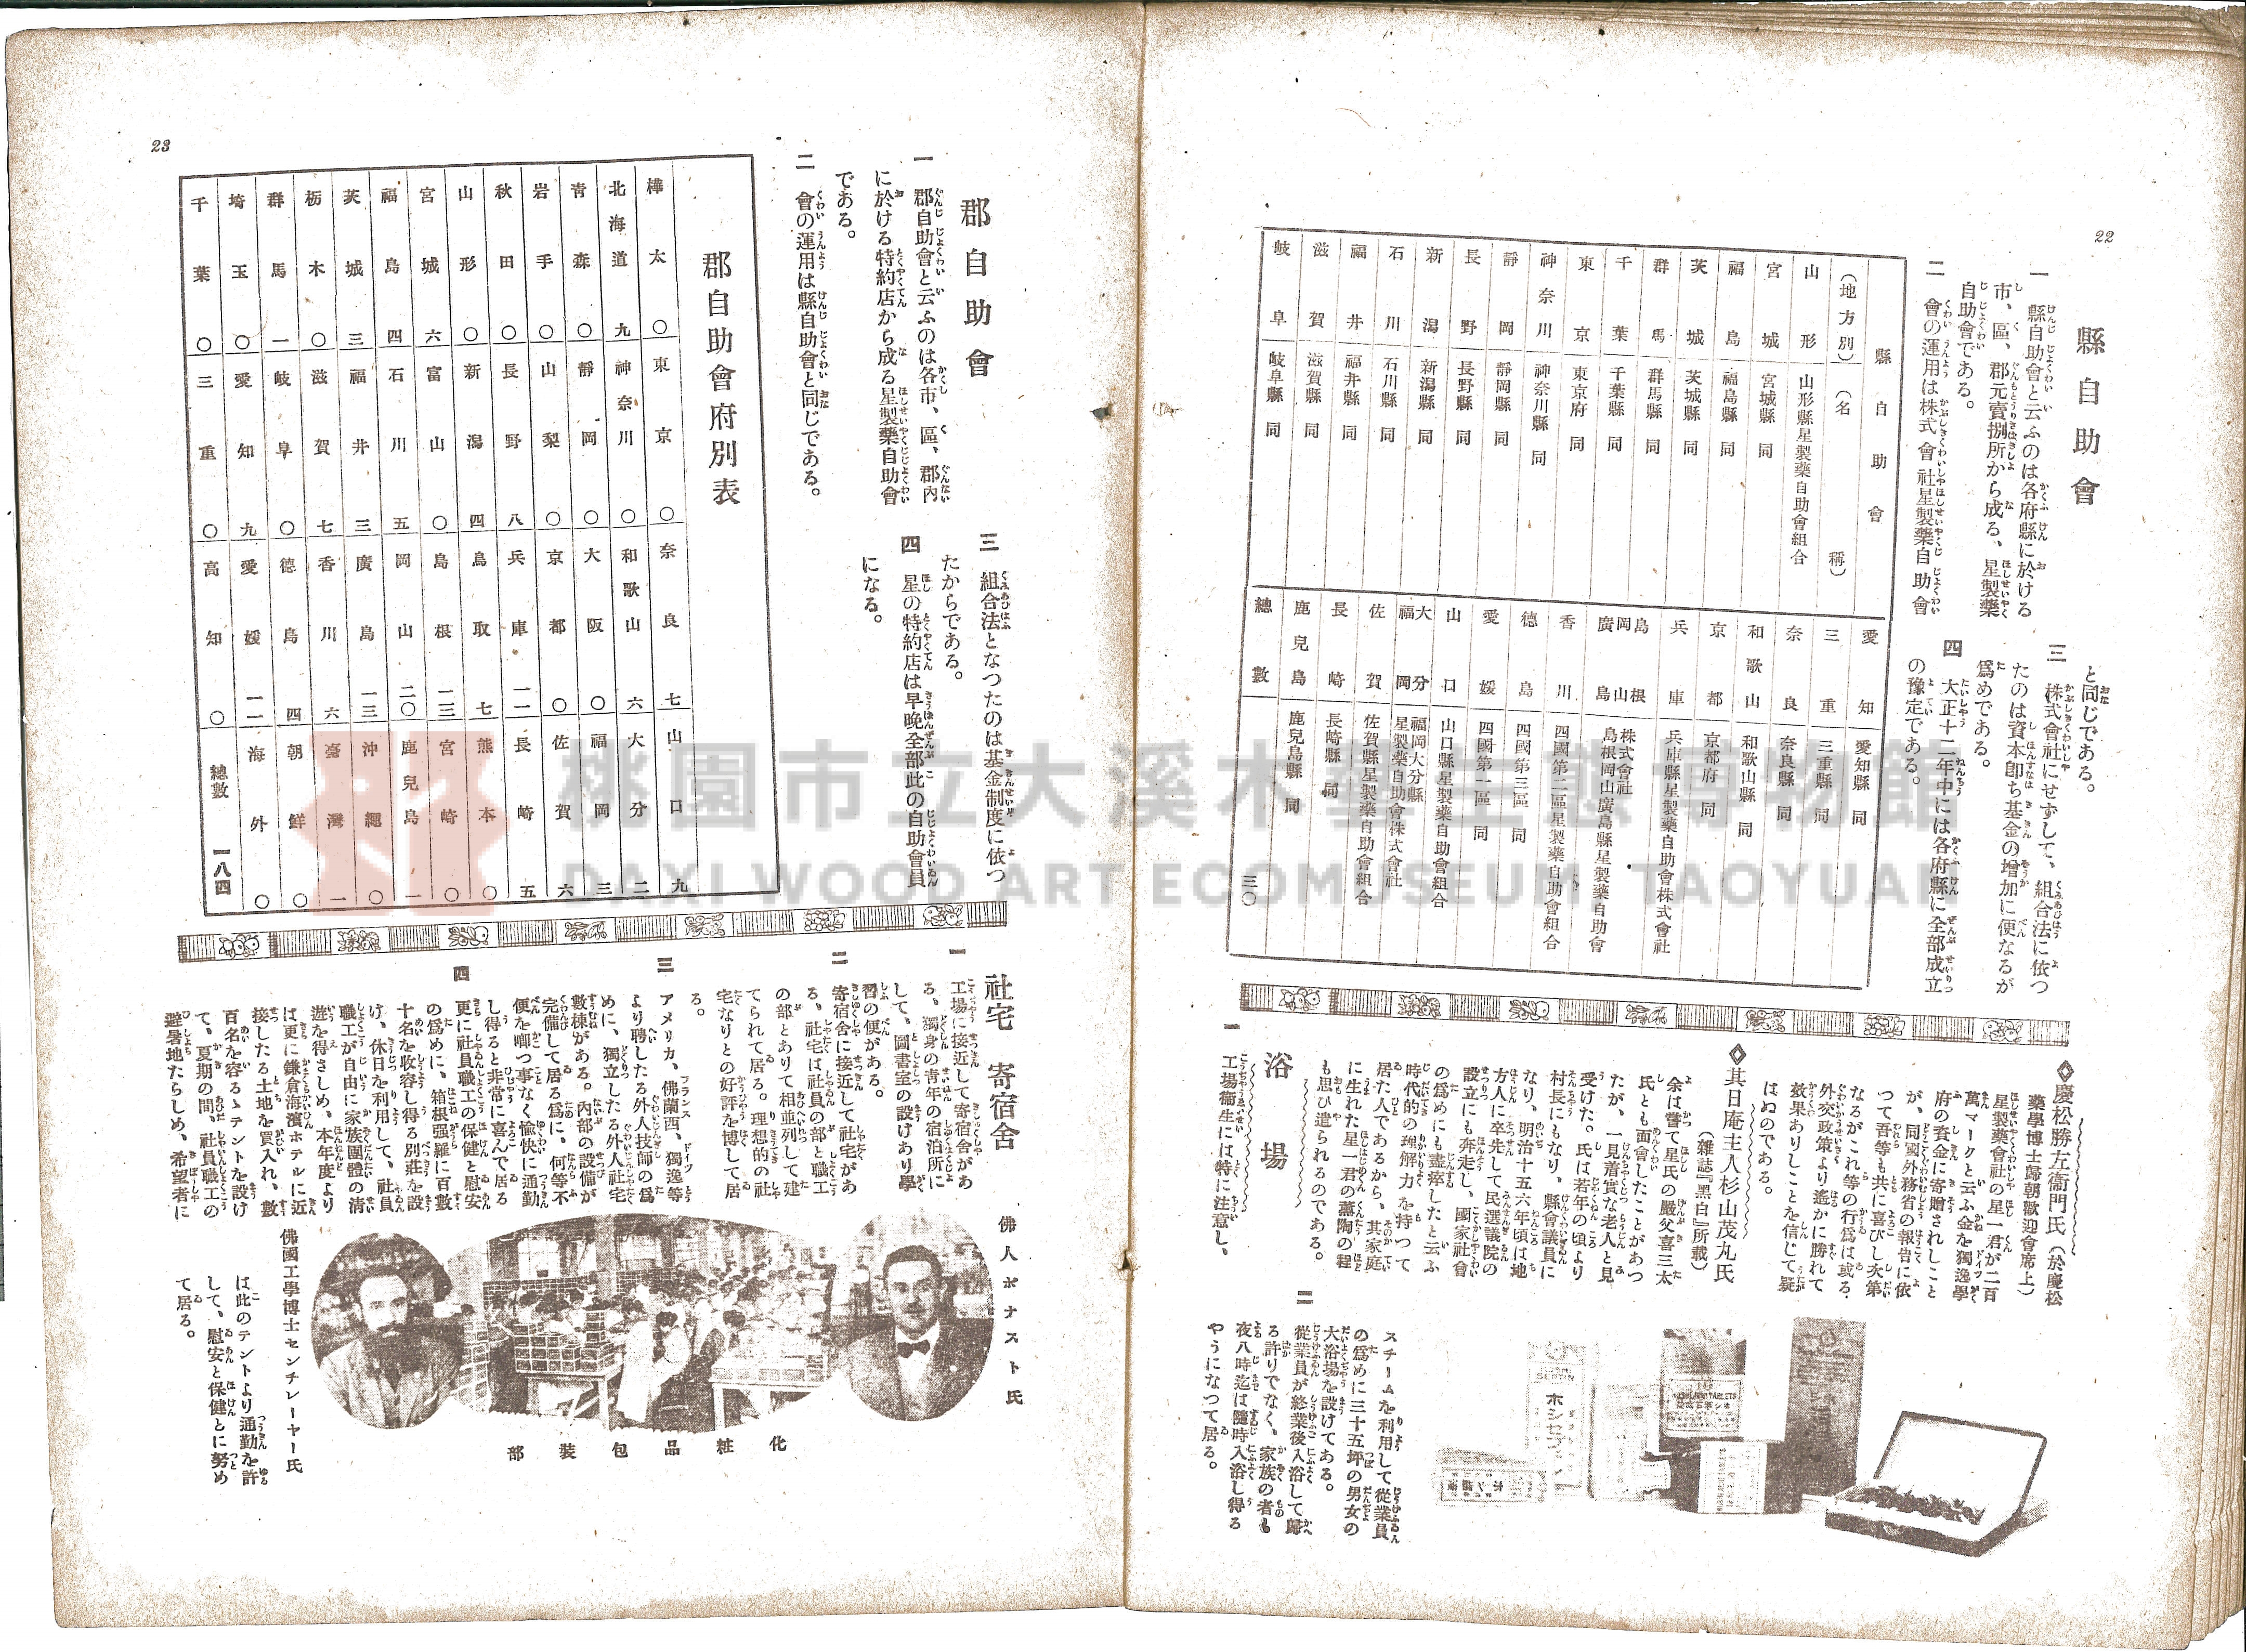 22
縣自助會
一　縣自助會と云ふのは各府縣に於ける
市、區、郡元賣捌所から成る、星製藥
自助會である。
二　會の運用は株式會社星製藥自助會
と同じである。
三　株式會社にせずして、組合法に依つ
たのは資本卽ち基金の增加に便なるが
爲めである。
四　大正十二年中には各府縣に全部成立
の豫定である。
縣自助會
（地方別）（名稱）
山形　山形縣星製藥自助會組合
宮城　宮城縣同
福島　福島縣同
茨城　茨城縣同
群馬　群馬縣同
千葉　千葉縣同
東京　東京府同
神奈川　神奈川縣同
靜岡　靜岡縣同
長野　長野縣同
新潟　新潟縣同
石川　石川縣同
福井　福井縣同
滋賀　滋賀縣同
岐阜　岐阜縣同
愛知　愛知縣同
三重　三重縣同
奈良　奈良縣同
和歌山　和歌山縣同
京都　京都府同
兵庫　兵庫縣星製藥自助會株式會社
島根
岡山
廣島　株式會社
島根岡山廣島縣星製藥自助會
香川　四國第二區星製藥自助會組合
德島　四國第三區同
愛媛　四國第一區同
山口　山口縣星製藥自助會組合
大分
福岡　福岡大分縣
星製藥自助會株式會社
佐賀　佐賀縣星製藥自助會組合
長崎　長崎縣同
鹿兒島　鹿兒島縣同
總數　三〇
◇慶松勝左衞門氏（於慶松
藥學博士歸朝歡迎會席上）
星製藥會社の星一君が二百
萬マークと云ふ金を獨逸學
府の資金に寄贈されしこと
が、同國外務省の報告に依
つて吾等も共に喜びし次第
なるがこれ等の行爲は或る
外交政策より遙かに勝れて
效果ありしことを信じて疑
はぬのである。
◇其日庵主人杉山茂丸氏
（雜誌『黑白』所載）
余は嘗て星氏の嚴父喜三太
氏とも面會したことがあつ
たが、一見着實な老人と見
受けた。氏は若年の頃より
村長にもなり、縣會議員に
なり、明治十五六年頃は地
方人に卒先して民選議院の
設立にも奔走し、國家社會
の爲めにも盡瘁したと云ふ
時代的の理解力を持つて
居た人であるから、其家庭
に生れた星一君の薰陶の程
も思ひ遣られるのである。
浴場
一　工場衞生には特に注意し、
スチームを利用して從業員
の爲めに三十五坪の男女の
大浴場を設けてある。
二　從業員が終業後入浴して歸
る許りでなく、家族の者も
夜八時迄は隨時入浴し得る
やうになつて居る。
ホシセプチン
23
郡自助會
一　郡自助會と云ふのは各市、區、郡內
に於ける特約店から成る星製藥自助會
である。
二　會の運用は縣自助會と同じである。
三　組合法となつたのは基金制度に依つ
たからである。
四　星の特約店は早晚全部此の自助會員
になる。
郡自助會府別表
樺太　〇　東京　〇　奈良　七　山口　九
北海道　九　神奈川　〇　和歌山　六　大分　二
靑森　〇　靜岡　〇　大阪　〇　福岡　三
岩手　〇　山梨　〇　京都　〇　佐賀　六
秋田　〇　長野　八　兵庫　一一　長崎　五
山形　〇　新潟　四　鳥取　七　熊本　〇
宮城　六　富山　〇　島根　一三　宮崎　〇
福島　四　石川　五　岡山　二〇　鹿兒島　一
茨城　三　福井　三　廣島　一三　沖繩　〇
栃木　〇　滋賀　七　香川　六　臺灣　一
群馬　一　岐阜　〇　德島　四　朝鮮　〇
埼玉　〇　愛知　九　愛媛　一一　海外　〇
千葉　〇　三重　〇　高知　〇　總數　一八四
社宅　寄宿舍
一　工場に接近して寄宿舍があ
る、獨身の靑年の宿泊所に
して、圖書室の設けあり學
習の便がある。
二　寄宿舍に接近して社宅があ
る、社宅は社員の部と職工
の部とありて相並列して建
てられて居る。理想的の社
宅なりとの好評を博して居
る。
三　アメリカ、佛蘭西、獨逸等
より聘したる外人技師の爲
めに、獨立したる外人社宅
數棟がある。內部の設備が
完備して居る爲に、何等不
便を喞つ事なく愉快に通勤
し得ると非常に喜んで居る
四　更に社員職工の保健と慰安
の爲めに、箱根强羅に百數
十名を收容し得る別莊を設
け、休日を利用して、社員
職工が自由に家族團體の淸
遊を得さしめ、本年度より
は更に鎌倉海濱ホテルに近
接したる土地を買入れ、數
百名を容るゝテントを設け
て、夏期の間、社員職工の
避暑地たらしめ、希望者に
は此のテントより通勤を許
して、慰安と保健とに努め
て居る。
佛人ボナスト氏
化粧品包裝部
佛國工學博士センチレーヤー氏
桃園市立大溪木藝生態博物館
DAXI WOOD ART ECOMUSEUM TAOYUAN